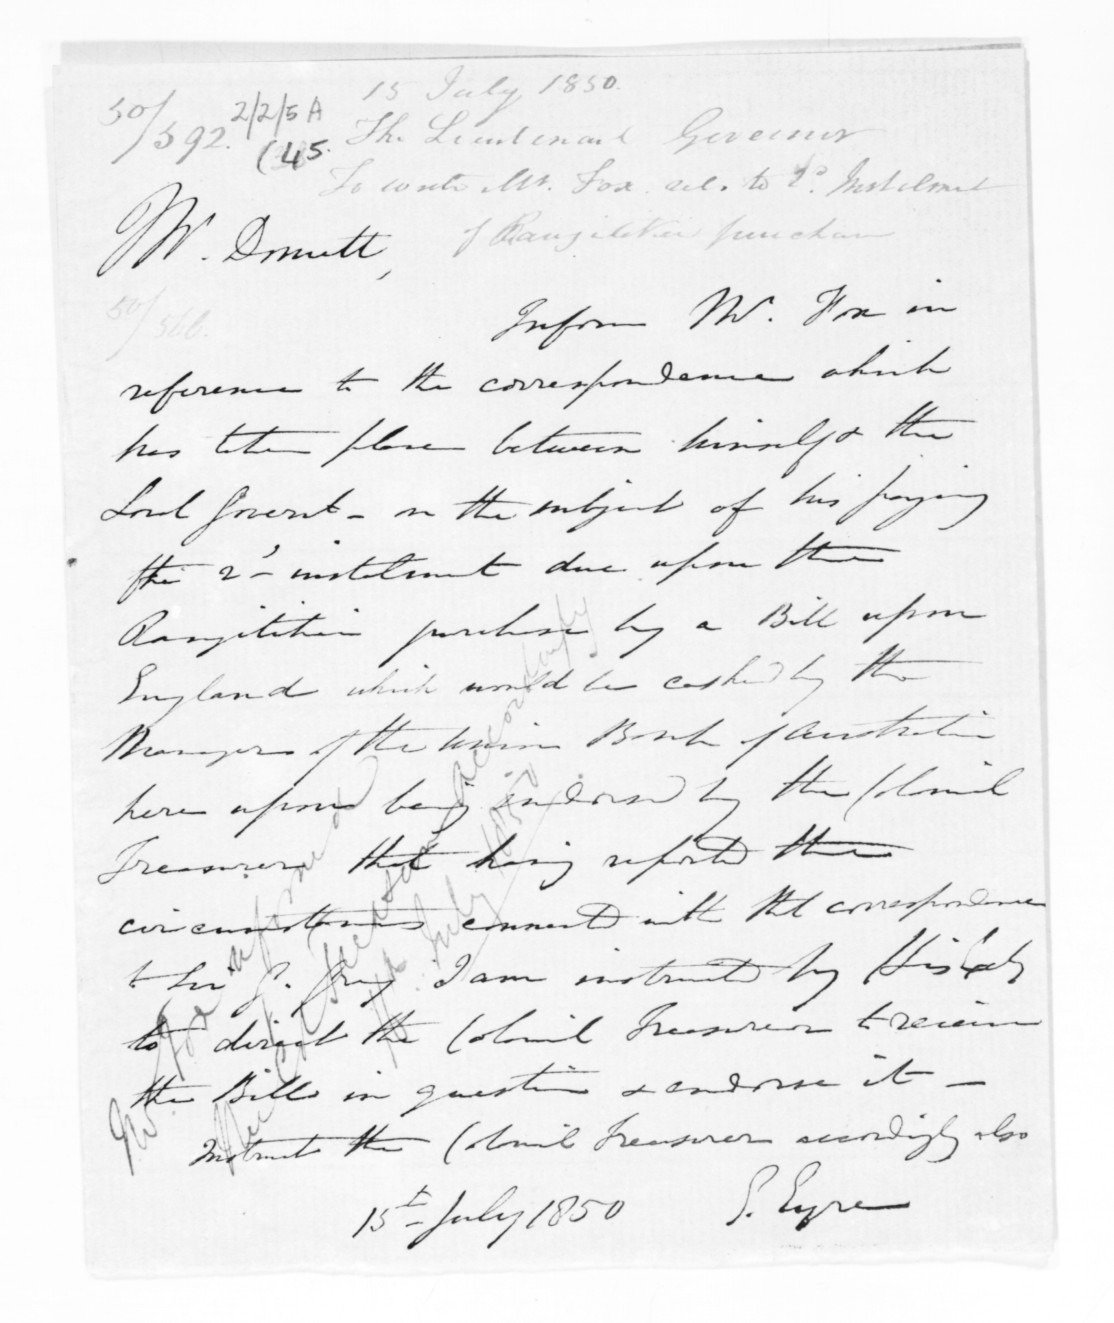 15 July 1850.
50/392. 2/2/5A
(45.
The Lieutenant Governor
To write Mr. Fox rel. to 2d. Instalment
of Rangitikei purchase
Mr. Domett,
50/566.
Inform Mr. Fox in
reference to the correspondence which
has taken place between himself & the
Local Govern't - on the subject of his paying
the 2d - instalment due upon the
Rangitikei purchase by a Bill upon
England which would be cashed by the
Manager of the Union Bank of Australia
here upon being endorsed by the Colonial
Treasurer that having reported the
circumstances connected with that correspondence
to Sir G. Grey I am instructed by His Excly
to direct the Colonial Treasurer to receive
the Bills in question & endorse it -
Instruct the Colonial Treasurer accordingly also
15t July 1850 E. Eyre
Mr. Fox informed
and Col Treasurer accordingly
July 1850